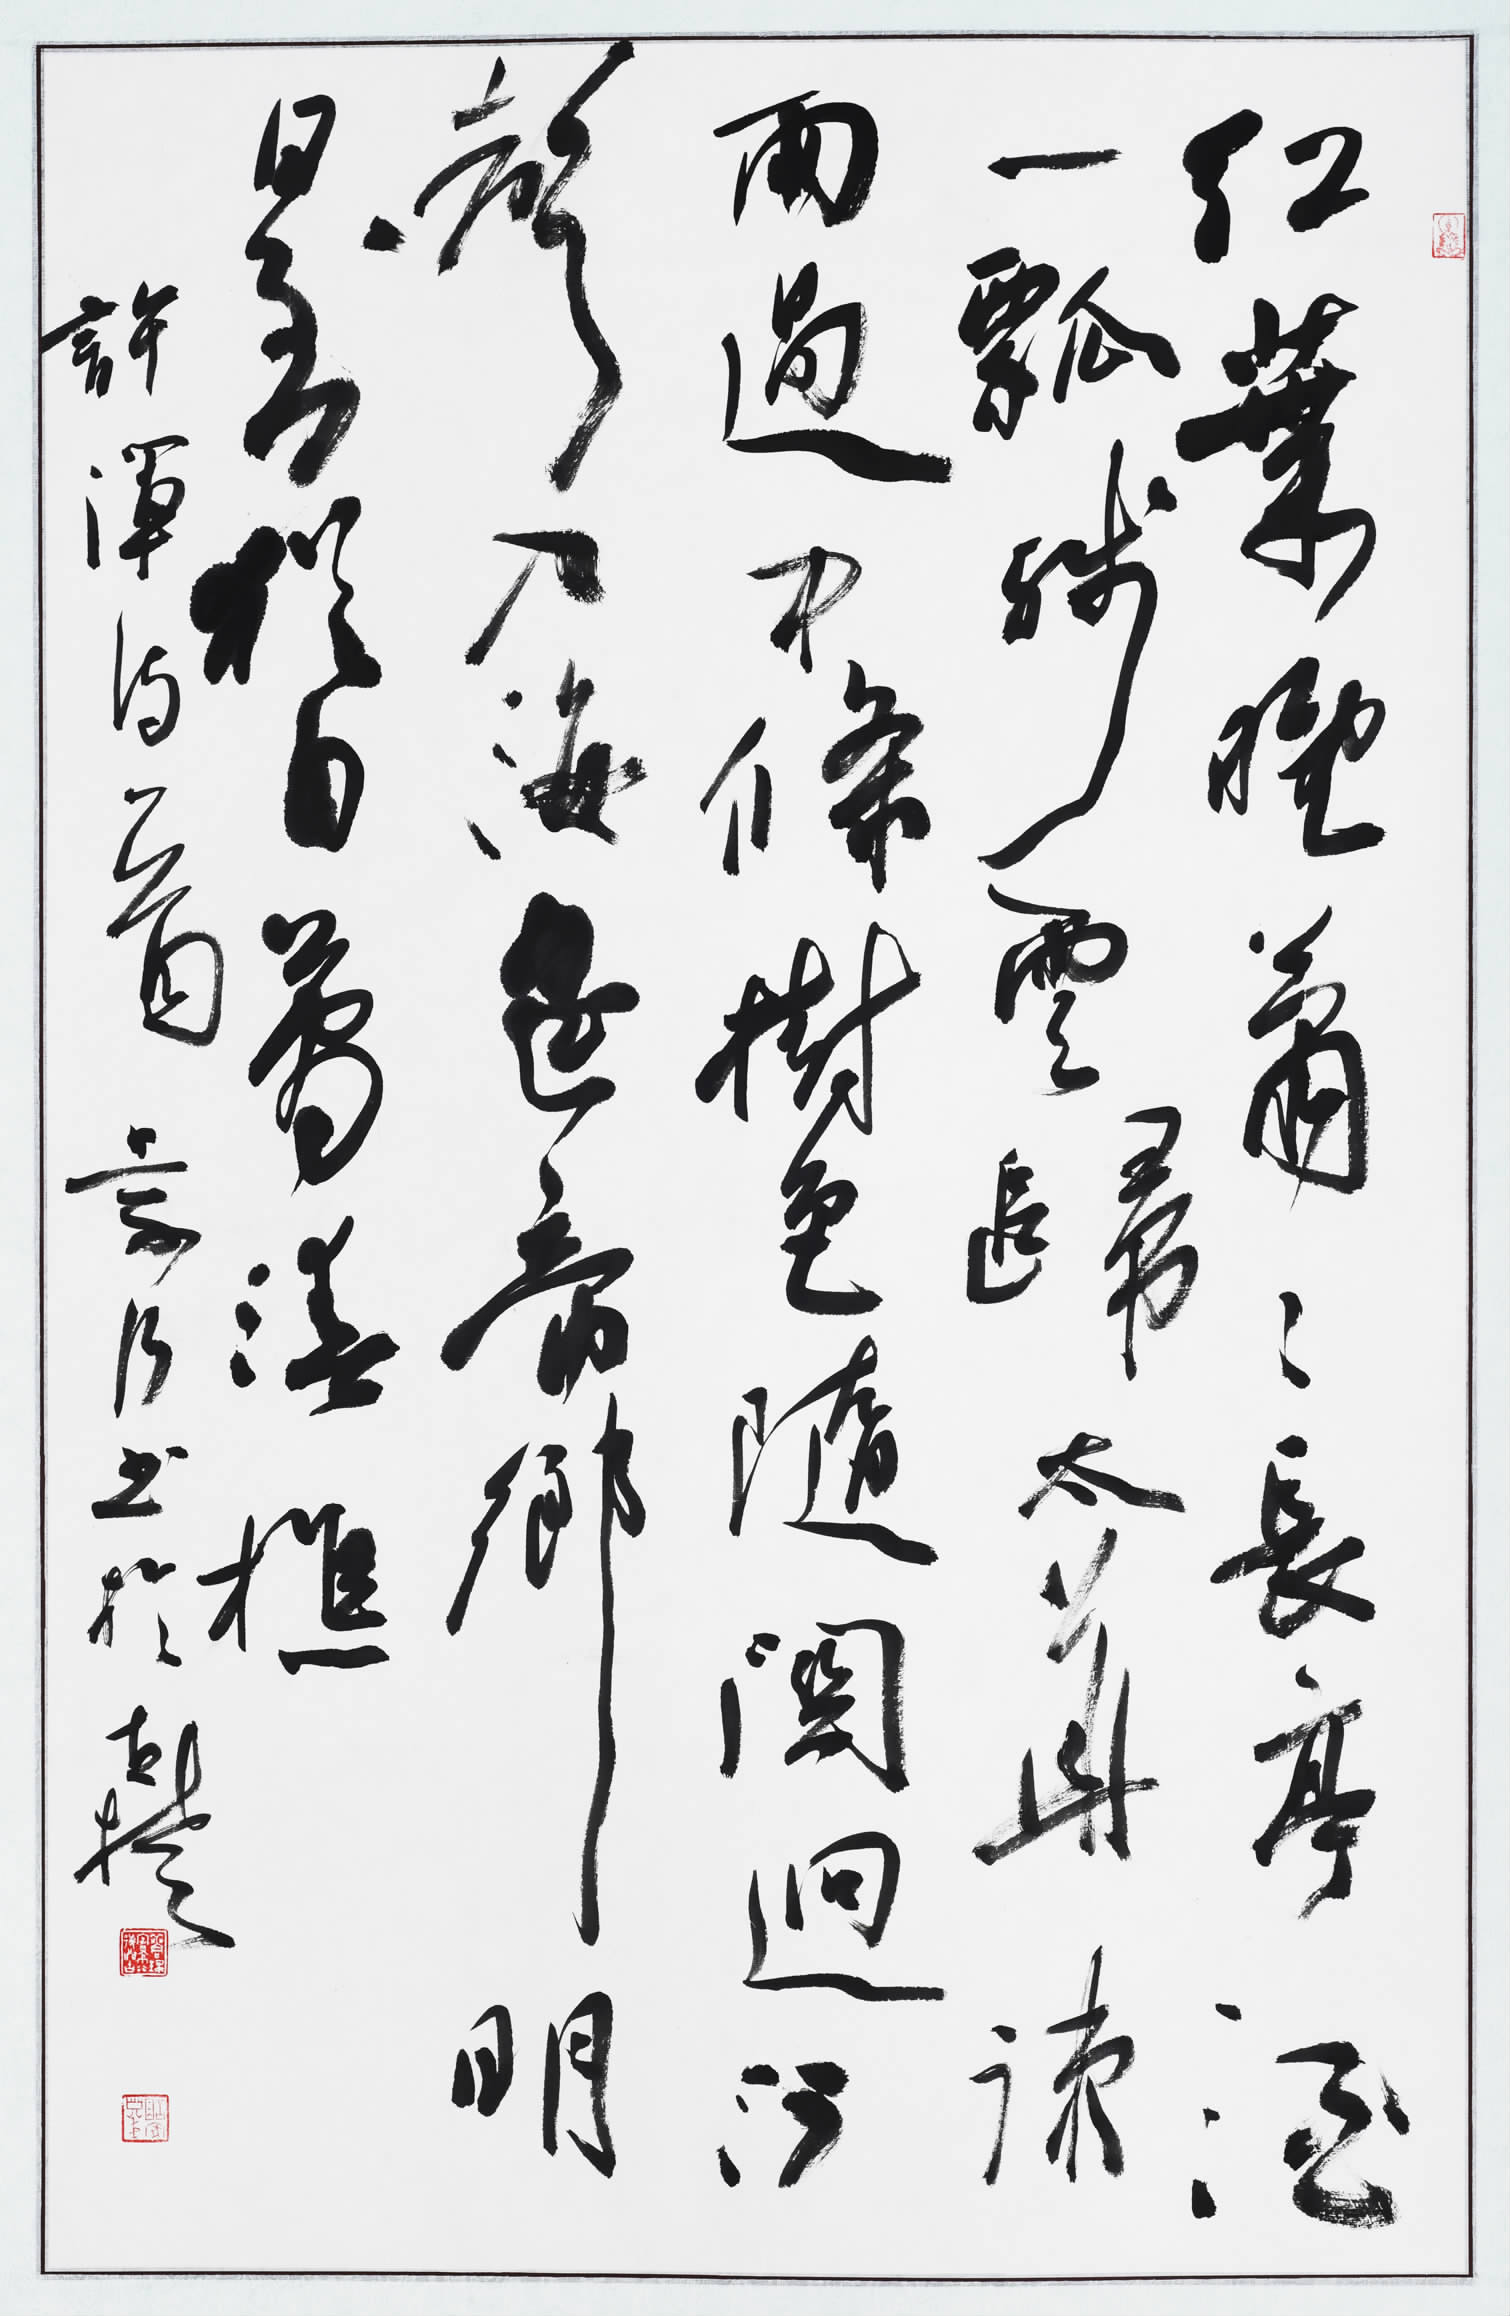 紅葉晚蕭〻長亭酒
一瓢殘雲歸太華疎
雨過中條樹色隨關迥河
聲入海遙帝鄉明
日到猶自夢漁樵
許渾詩一首 書於